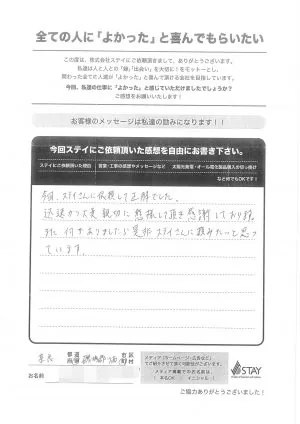 全ての人に「よかった」と喜んでもらいたい
この度は、株式会社ステイにご依頼頂きまして、ありがとうございます。
私達は人と人との「縁」「出会い」を大切に！をモットーとし、
関わった全ての人達が「よかった」と喜んで頂ける会社を目指しています。
今回、私達の仕事に「よかった」と感じていただけましたでしょうか？
ご感想をお願いいたします！
お客様のメッセージは私達の励みになります！！
今回ステイにご依頼頂いた感想を自由にお書き下さい。
ステイにご依頼頂いた理由
営業・工事の感想やメッセージなど
太陽光発電・オール電化製品購入の切っ掛け
など何でもOKです！
今回、ステイさんに依頼して正解でした。
迅速かつ大変親切に態接して頂き感謝しており
何かありましたら是非ステイさんに頼みたいと思っ
ています。
都道
府県
市区
町村
お名前
メディア（ホームページ・広告など）
メディア掲載でのお名前は、
本名OK
イニシャル
STAY
ご協力ありがとうございました！